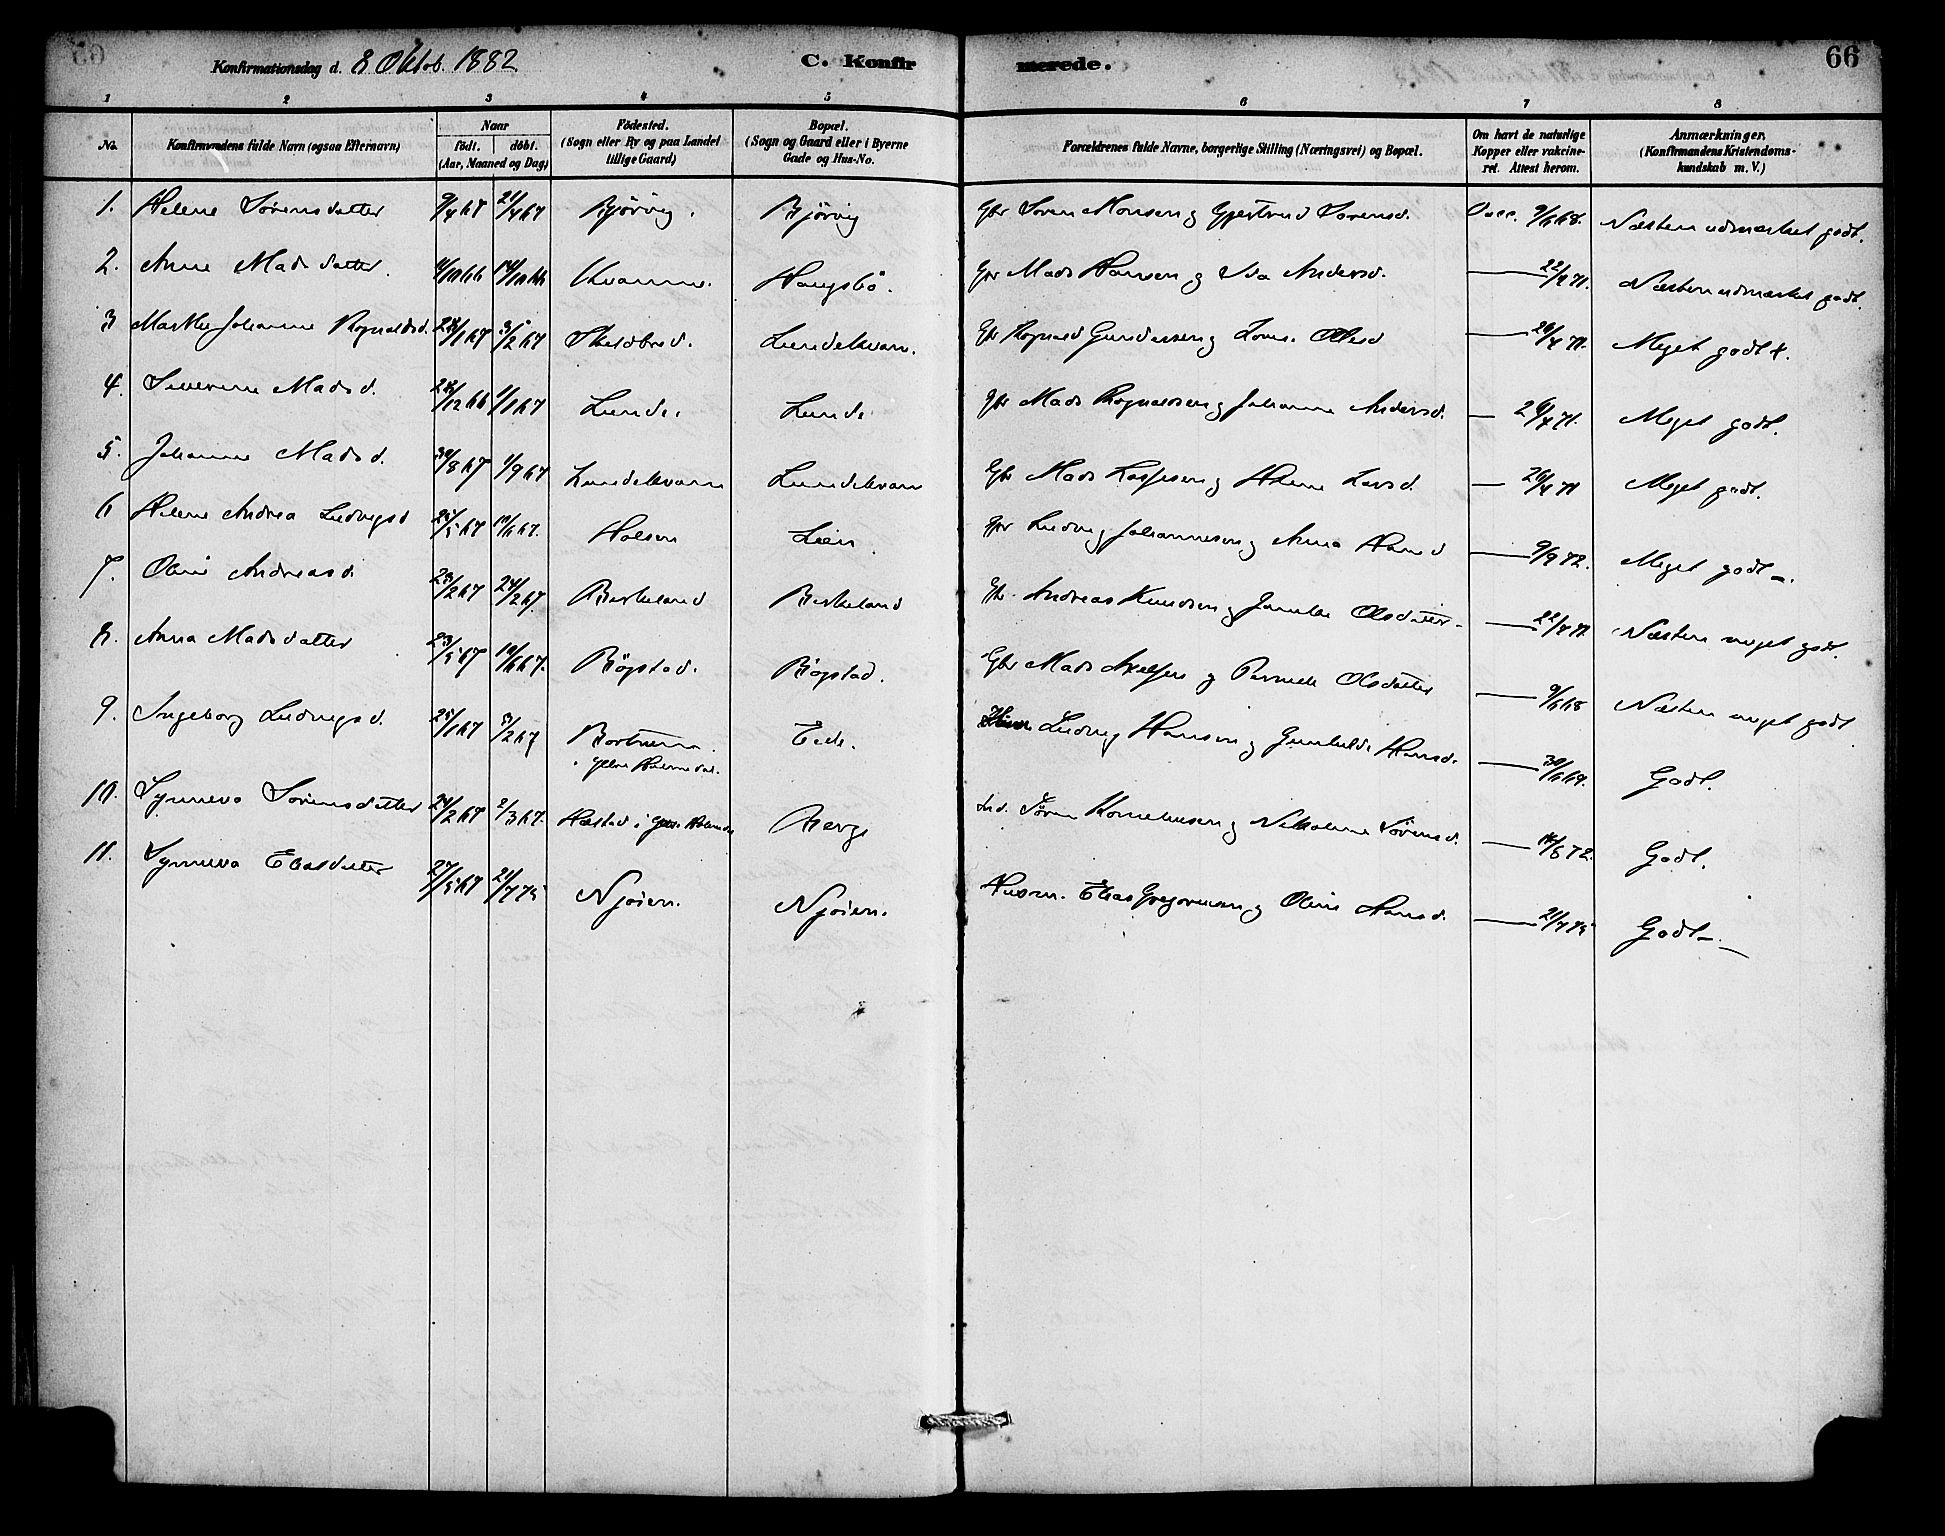 Konfirmationsdag d. 8 Oktob. 1882.
C. Konfir
merede.
66
1 2 3 4 5 6 7 8
No.
Konfirmandens fulde Navn (ogsaa Efternavn)
Naar
födt. döbt.
(Aar, Maaned og Dag)
Födested.
(Sogn eller By og paa Landet
tillige Gaard)
Bopæl.
(Sogn og Gaard eller i Byerne
Gade og Hus-No.
Forældrenes fulde Navne, borgerlige Stilling (Næringsvei) og Bopæl.
Om havt de naturlige
Kopper eller vakcine-
ret. Attest herom.
Anmærkninger.
(Konfirmandens Kristendoms-
kundskab m. V.)
1. Helene Sørensdatter 9/4 67 21/4 67 Bjørvig. Bjørvig Gbr Søren Monsen og Gjertrud Sørensd. Vacc. 9/6 68. Næsten udmærket godt.
2. Anne Madsdatter. 14/10 66 Kvamme. Haugsbø. Gbr Mads Hansen og Andersd. — 22/ 71. Næsten udmærket godt.
3 Marthe Johanne Rognaldsd. 3/2 67 Lundekvam. Gbr Rognald Gundersen og Olesd — 26/4 71. Meget godt +.
4. Severine Madsd. 28/12 66 1/1 67 Lunde. Lunde Gbr Mads Rognaldsen og Johanne Andersd. — 26/4 71. Meget godt.
5. Johanne Madsd. /8 67 1/9 67 Lundekvam Lundekvam Gbr Mads og Helene Larsd. — 26/4 71 Meget godt.
6 Helene Andrea Ludvigsd 25/5 67 10/6 67. Holsen Lien. Gbr Ludvig Johannesen og Anna Hansd — 9/9 72. Meget godt -.
7. Oline Andreasd. /2 67 24/2 67. Birkeland Birkeland Gbr. Andreas Knudsen og Olsdatter — 22/4 71 Næsten meget godt.
8. Anna Madsdatter 23/5 67 10/6 67. Bögstad. Bögstad. Gbr Mads og Pernele Olsdatter — 9/6 68 Næsten meget godt
9. Ingeborg Ludvigsd. 25/1 67 3/2 67 Eide. Ludvig Hansen og Gunhilde Hansd. — 30/6 69. Godt.
10. Synneva Sørensdatter 24/2 67 2/3 67. Hæstad i Berge Ind. Søren Korneliusen og Nikoline Sørensd. — 72. Godt.
11. Synneva Eliasdatter 27/5 67 21/7 75 Njøien. Njøien. Husm. Elias Gregoriusen og Oline Hansd. — 21/7 75 Godt -.